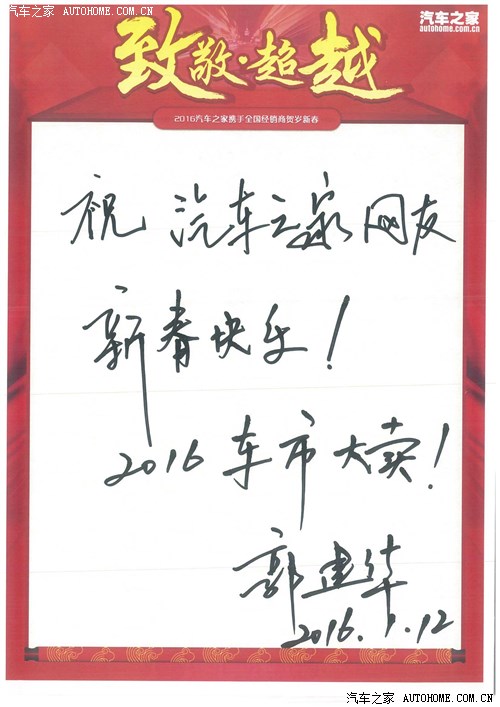 汽车之家 AUTOHOME.COM.CN
汽车之家
autohome.com.cn
致敬·超越
2016汽车之家携手全国经销商贺岁新春
祝 汽车之家网友
新春快乐！
2016 车市大卖！
郭建华
2016.1.12
汽车之家 AUTOHOME.COM.CN